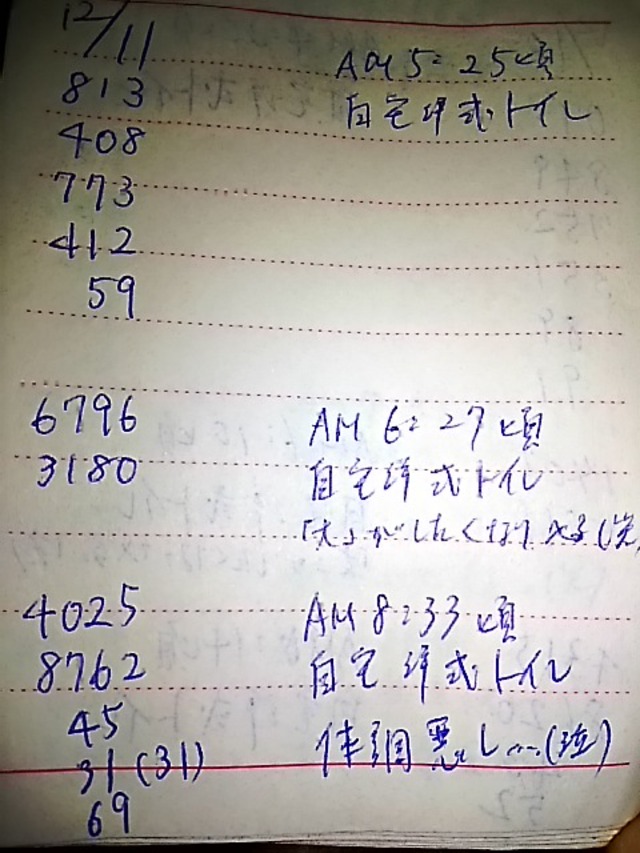 12/11
813 AM 5:25頃
408 自宅洋式トイレ
773
412
59
6796 AM 6:27頃
3180 自宅洋式トイレ
「大」がしたくなり
4025 AM 8:33頃
8762 自宅洋式トイレ
45 体調悪し…(泣)
31(31)
69